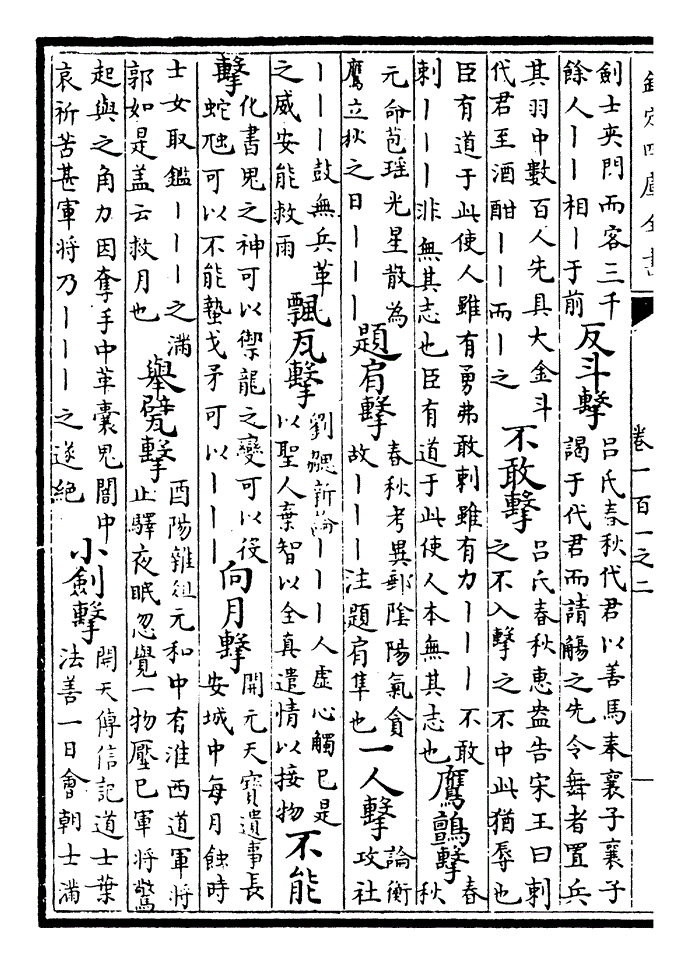 欽定四庫全書
卷一百一之二
劍士夾門而客三千
餘人丨丨相丨于前
反斗擊
呂氏春秋代君以善馬奉襄子襄子
謁于代君而請觴之先令舞者置兵
其羽中數百人先具大金斗
代君至酒酣丨丨而丨之
不敢擊
呂氏春秋惠盎告宋王曰刺
之不入擊之不中此猶辱也
臣有道于此使人雖有勇弗敢刺雖有力丨丨丨不敢
刺丨丨丨非無其志也臣有道于此使人本無其志也
鷹鸇擊
春
秋
元命苞瑶光星散為
鷹立秋之日丨丨丨
題肩擊
春秋考異郵陰陽氣貪
故丨丨丨注題肩隼也
一人擊
論衡
攻社
丨丨丨鼓無兵革
之威安能救雨
飄瓦擊
劉勰新論丨丨丨人虛心觸已是
以聖人棄智以全真遣情以接物
不能
擊
化書鬼之神可以禦龍之變可以役
蛇虺可以不能蟄戈矛可以丨丨丨
向月擊
開元天寶遺事長
安城中每月蝕時
士女取鑑丨丨丨之滿
郭如是盖云救月也
舉甓擊
酉陽雜俎元和中有淮西道軍將
止驛夜眠忽覺一物壓已軍將驚
起與之角力因奪手中革囊鬼闇中
哀祈苦甚軍將乃丨丨丨之遂絶
小劍擊
開天傳信記道士葉
法善一日會朝士滿